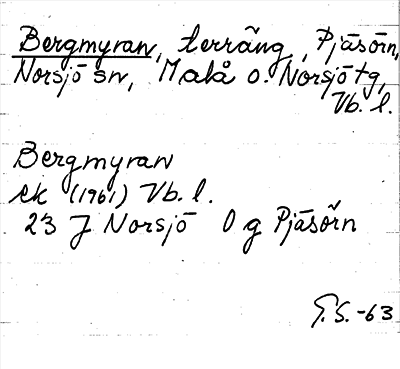 Bergmyran, terräng, Pjäsörn,
Norsjö sn, Malå o. Norsjö tg,
Vb. l.
Bergmyran
ek (1961) Vb. l.
23 J Norsjö 0 g Pjäsörn
G.S. -63